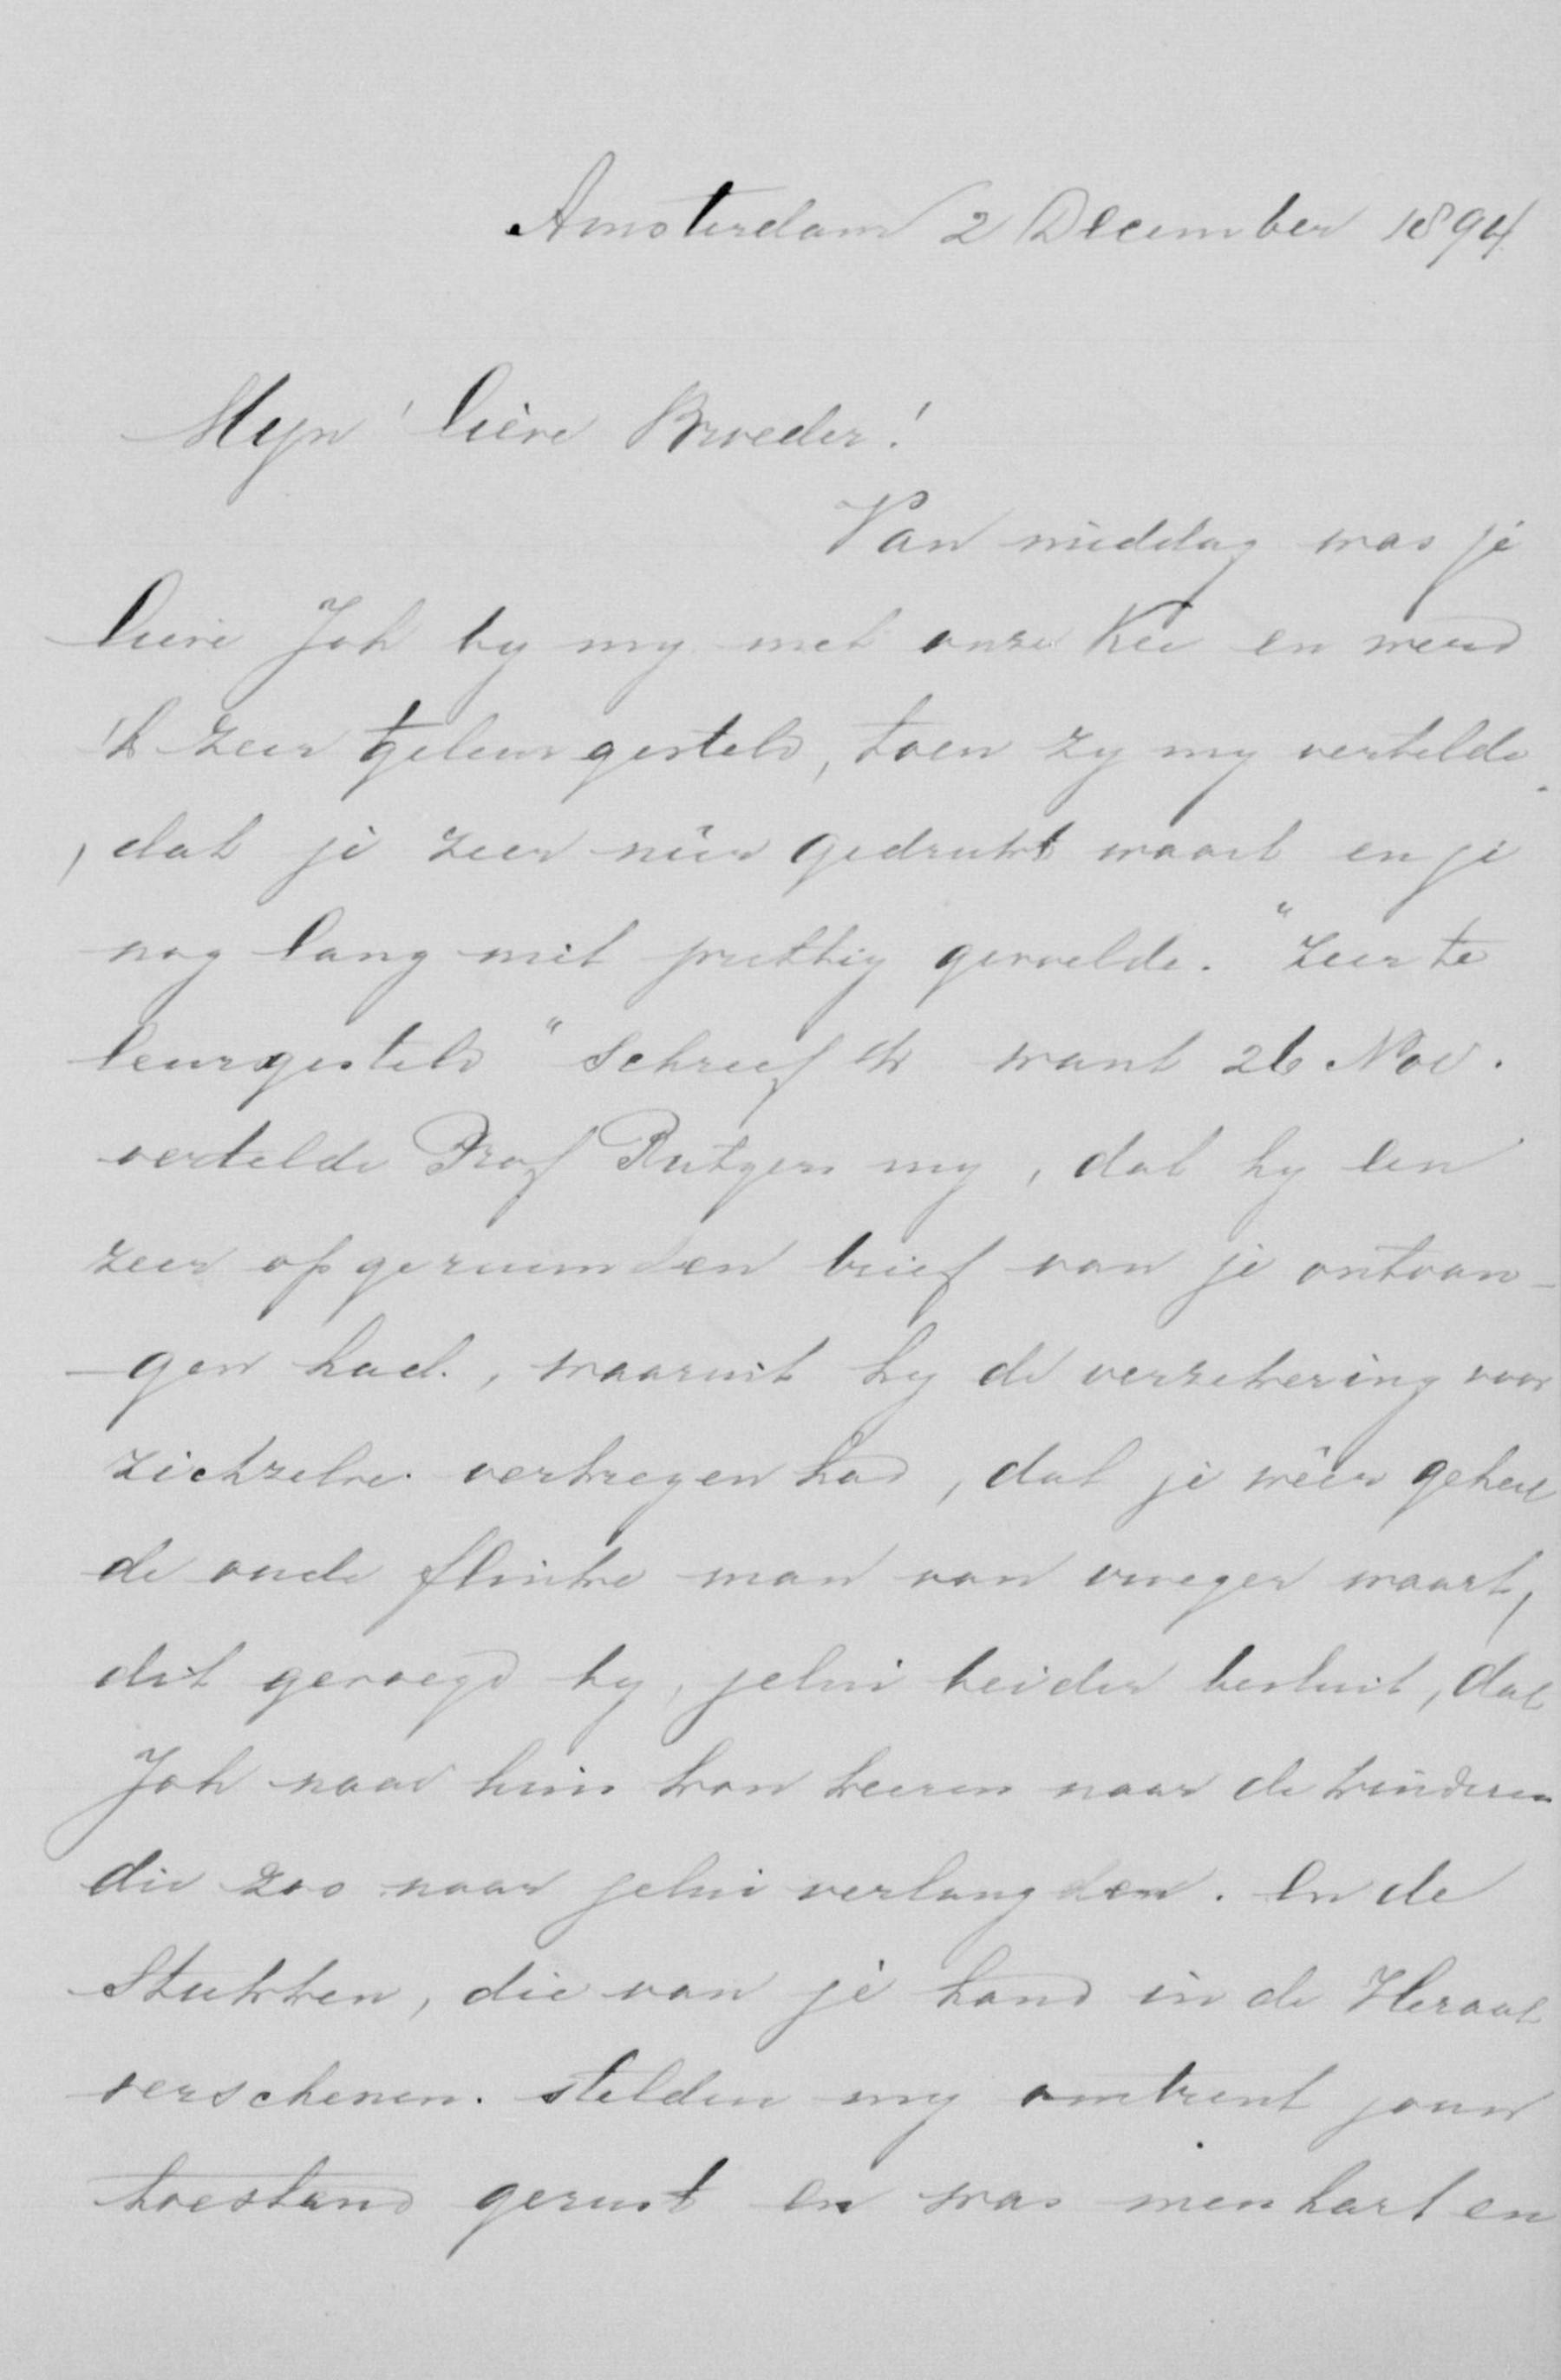 Amsterdam 2 December 1894
Myn lieve Broeder!
Van middag was je
lieve Joh by my met onze Kee en werd
ik zeer teleurgesteld, toen zy my vertelde
, dat je zeer neer gedrukt waart en je
nog lang niet prettig gevoelde. "Zeer te
leurgesteld" schreef ik want 26 Nov.
vertelde Prof Rutgers my, dat hy een
zeer opgeruimden brief van je ontvan-
-gen had., waaruit hy de verzekering voor
zichzelve. verkregen had, dat je weer geheel
de oude flinke man van vroeger waart,
dit gevoegd by, jelui beider besluit, dat
Joh naar huis kon keeren naar de kinderen
die zoo naar jelui verlangden. En de
Stukken, die van je hand in de Heraut
verschenen. stelden my omtrent jouw
toestand gerust en was men hart en